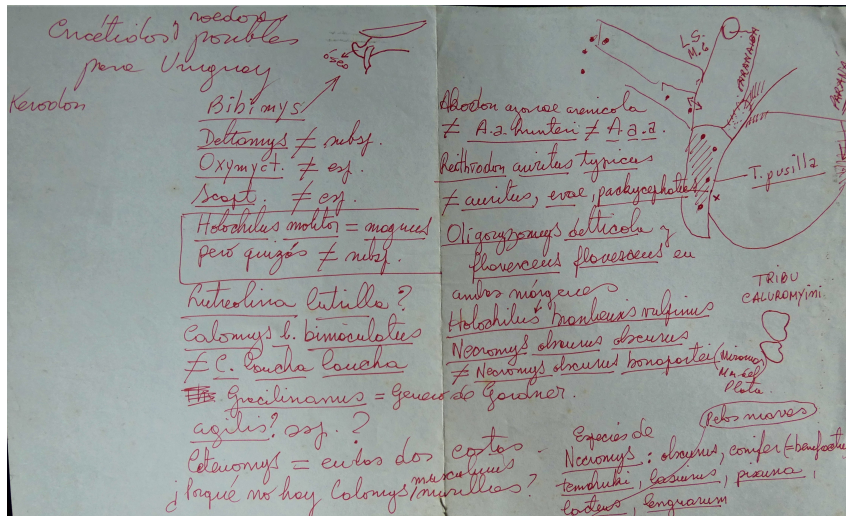 Cricétidos y roedores posibles
para Uruguay
óseo
Kerodon
Bibimys
Deltamys ≠ subsp.
Oxymyct. ≠ esp.
Scapt. ≠ esp.
Holochilus molitor = magnus
pero quizás ≠ subsp.
Lutreolina lutrilla?
Calomys b. bimaculatus
≠ C. laucha laucha
Gracilinanus = Genero de Gardner.
agilis? ssp. ?
Ctenomys = entas dos costas.
¿Porqué no hay Calomys musculinus/murillus?
Akodon azarae arenicola
≠ A.a. hunteri ≠ A.a.a.
Reithrodon auritus typicus
≠ auritus, evae, pachycephalus
Oligoryzomys delticola y
flavescens flavescens en
ambas márgenes
Holochilus brasiliensis vulpinus
Necromys obscurus obscurus
≠ Necromys obscurus bonapartei (Miramar
Mar del
Plata.
L.S.
M.G
PARANAIBA
PARANA
T. pusilla
TRIBU
CALUROMYINI
Pelos navas
Especies de
Necromys: obscurus, conifer (=benefactus
temchuki, lasiurus, pixuna,
lactens, lenguarum